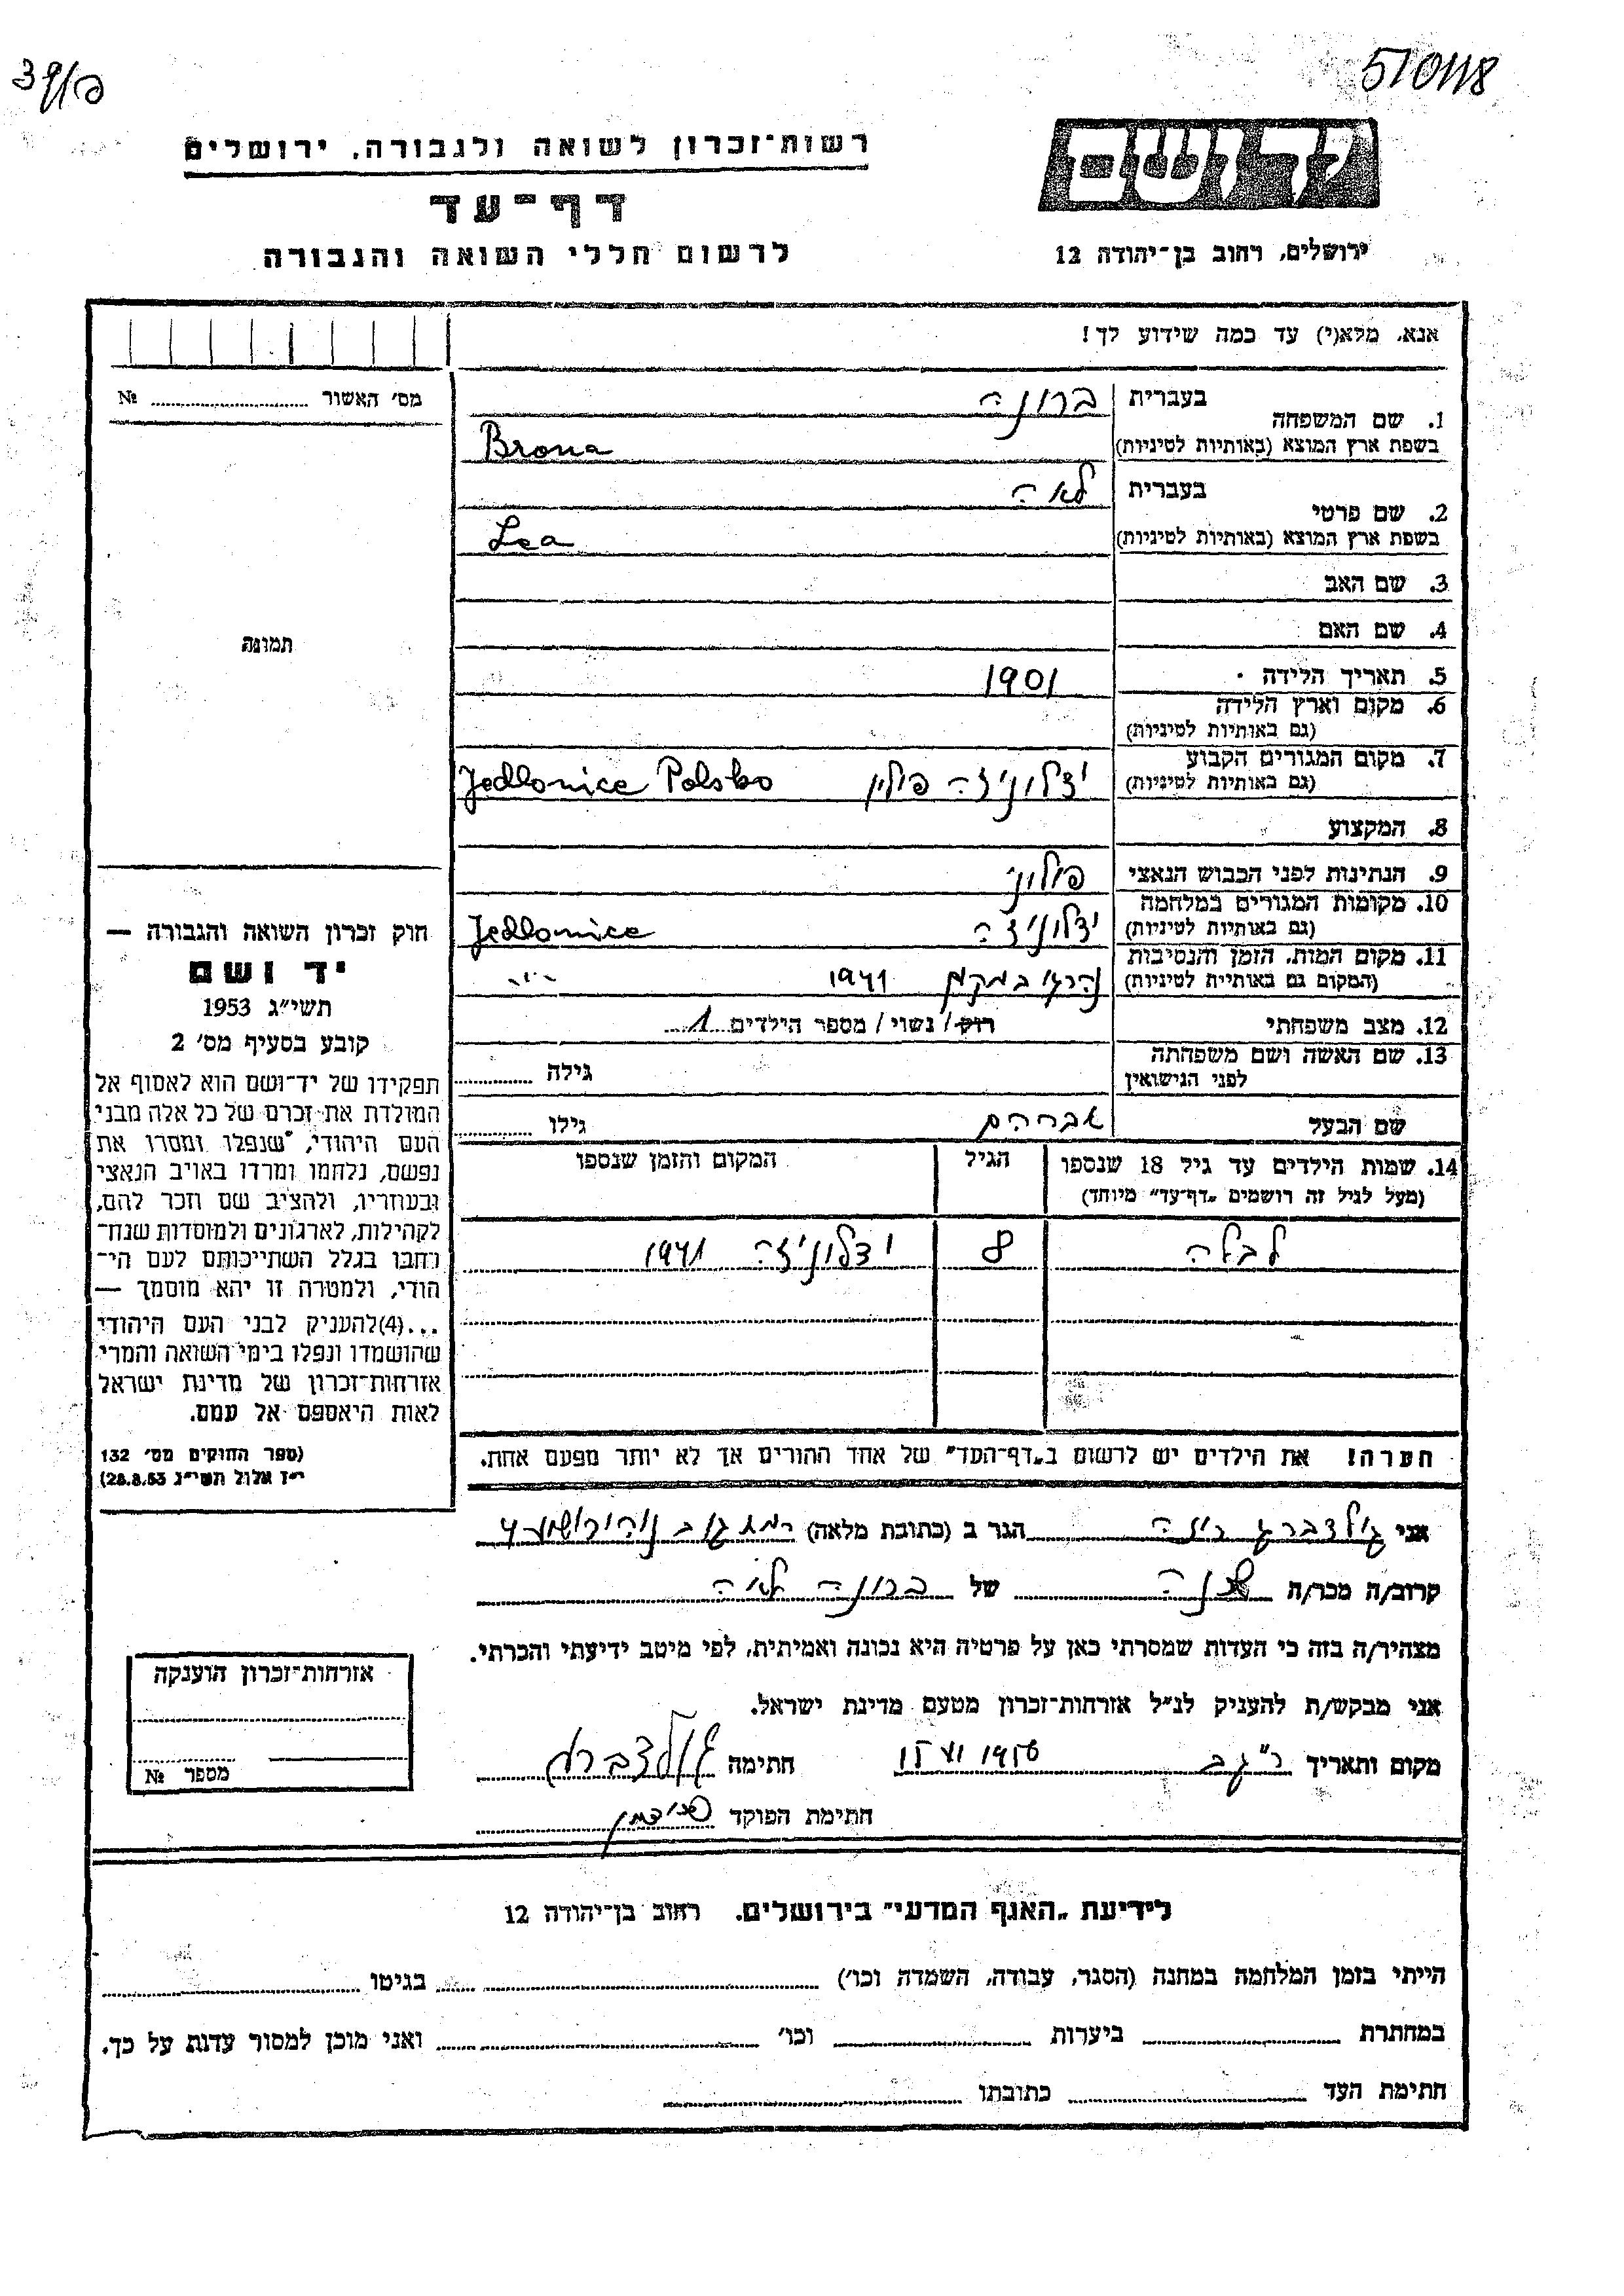 5/0118
רשות־זכרון לשואה ולגבורה, ירושלים
יד ושם
דף־עד
לרשום חללי השואה והגבורה
ירושלים, רחוב בן־יהודה 12
אנא, מלא(י) עד כמה שידוע לך!
מס׳ האשור № 
1. שם המשפחה בעברית ברונה
בשפת ארץ המוצא (באותיות לטיניות) Brona
2. שם פרטי בעברית לאה
בשפת ארץ המוצא (באותיות לטיניות) Lea
3. שם האב
4. שם האם
תמונה
5. תאריך הלידה 1901
6. מקום וארץ הלידה
(גם באותיות לטיניות)
7. מקום המגורים הקבוע
(גם באותיות לטיניות) ידלוניזה פולין Jedlonice Polsko
8. המקצוע
9. הנתינות לפני הכבוש הנאצי פולני
10. מקומות המגורים במלחמה
(גם באותיות לטיניות) ידלוניזה Jedlonice
11. מקום המות, הזמן והנסיבות
(המקום גם באותיית לטיניות) נהרגו במקום 1941
12. מצב משפחתי רוק / נשוי / מספר הילדים 1
13. שם האשה ושם משפחתה
לפני הנישואין גילה
שם הבעל אברהם גילו
14. שמות הילדים עד גיל 18 שנספו הגיל המקום והזמן שנספו
(מעל לגיל זה רושמים „דף־עד״ מיוחד)
לבלה 8 ידלוניזה 1941
הערה! את הילדים יש לרשום ב„דף־העד״ של אחד ההורים אך לא יותר מפעם אחת.
חוק זכרון השואה והגבורה —
יד ושם
תשי״ג 1953
קובע בסעיף מס׳ 2
תפקידו של יד־ושם הוא לאסוף אל
המולדת את זכרם של כל אלה מבני
העם היהודי, שנפלו ומסרו את
נפשם, נלחמו ומרדו באויב הנאצי
ובעוזריו, ולהציב שם וזכר להם,
לקהילות, לארגונים ולמוסדות שנח־
רבו בגלל השתייכותם לעם הי־
הודי, ולמטרה זו יהא מוסמך —
...(4)להעניק לבני העם היהודי
שהושמדו ונפלו בימי השואה והמרי
אזרחות־זכרון של מדינת ישראל
לאות היאספם אל עמם.
(ספר החוקים מס׳ 132
י״ז אלול תשי״ג 28.8.53)
אני גולדברג רוזה הגר ב (כתובת מלאה) רמת גן
קרוב/ה מכר/ה שכנה של ברונה לאה
מצהיר/ה בזה כי העדות שמסרתי כאן על פרטיה היא נכונה ואמיתית, לפי מיטב ידיעתי והכרתי.
אני מבקש/ת להעניק לנ״ל אזרחות־זכרון מטעם מדינת ישראל.
מקום ותאריך ר״ג 15 VI 1956 חתימה גולדברג
חתימת הפוקד
אזרחות־זכרון הוענקה
מספר №
לידיעת „האגף המדעי״ בירושלים. רחוב בן־יהודה 12
הייתי בזמן המלחמה במחנה (הסגר, עבודה, השמדה וכו׳) בגיטו
במחתרת ביערות וכו׳ ואני מוכן למסור עדות על כך.
חתימת העד כתובתו